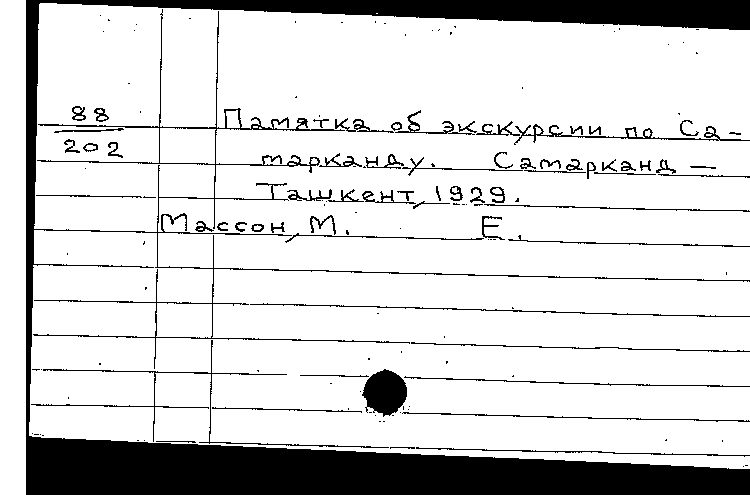 88
202
Памятка об экскурсии по Са-
марканду. Самарканд —
Ташкент, 1929.
Массон, М. Е.